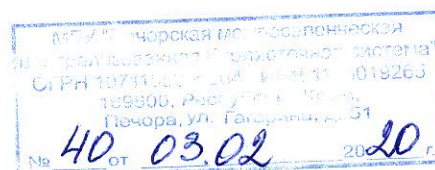 МБУ "Печорская межпоселенческая
централизованная библиотечная система"
ОГРН
169600, Респ. Коми,
Печора, ул. Гагарина, д. 51
№ 40 от 03.02 2020 г.